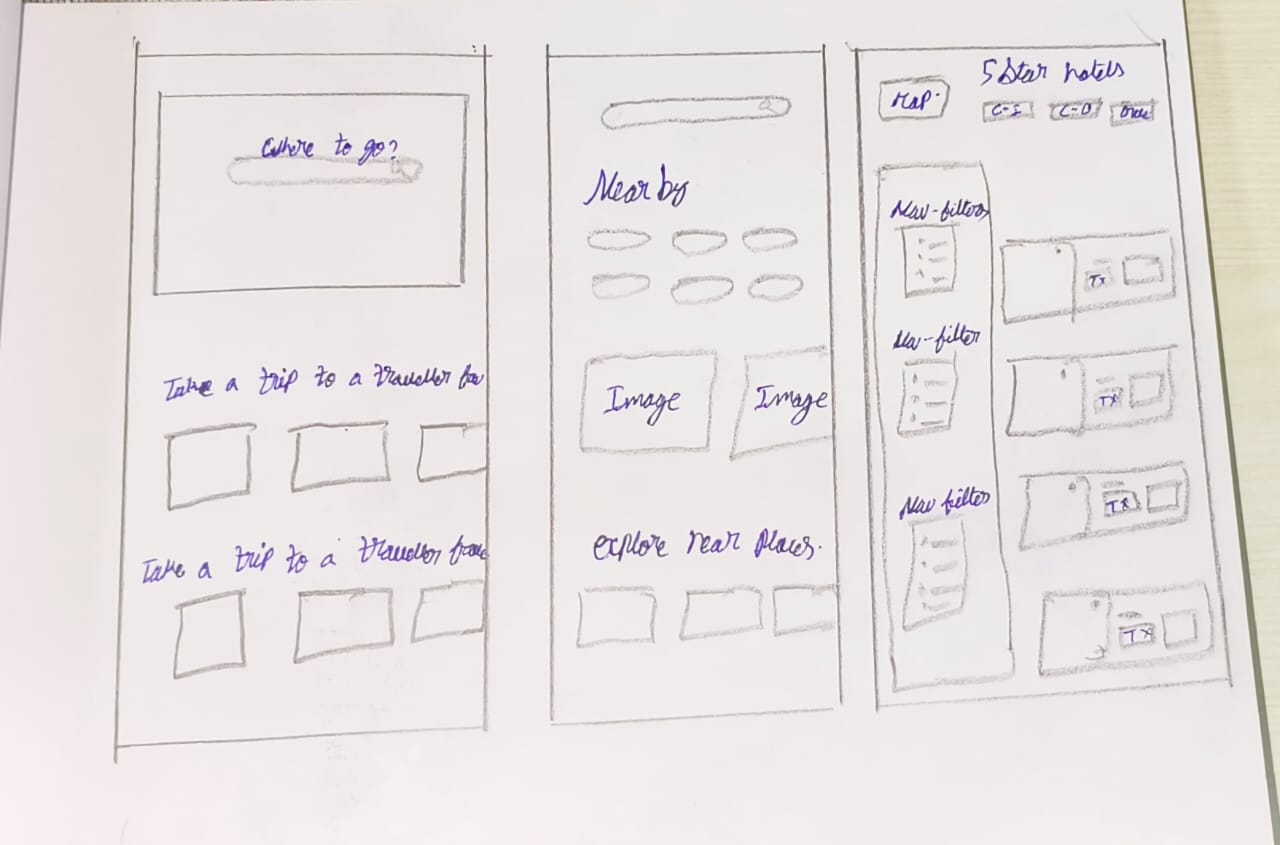 Where to go?
Take a trip to a traveller fav
Take a trip to a traveller fave
Nearby
Image
Image
explore near places.
Map.
5 Star hotels
C-I
C-O
Nav-filters
Nav-filter
Nav filter
Tx
TX
TX
TX